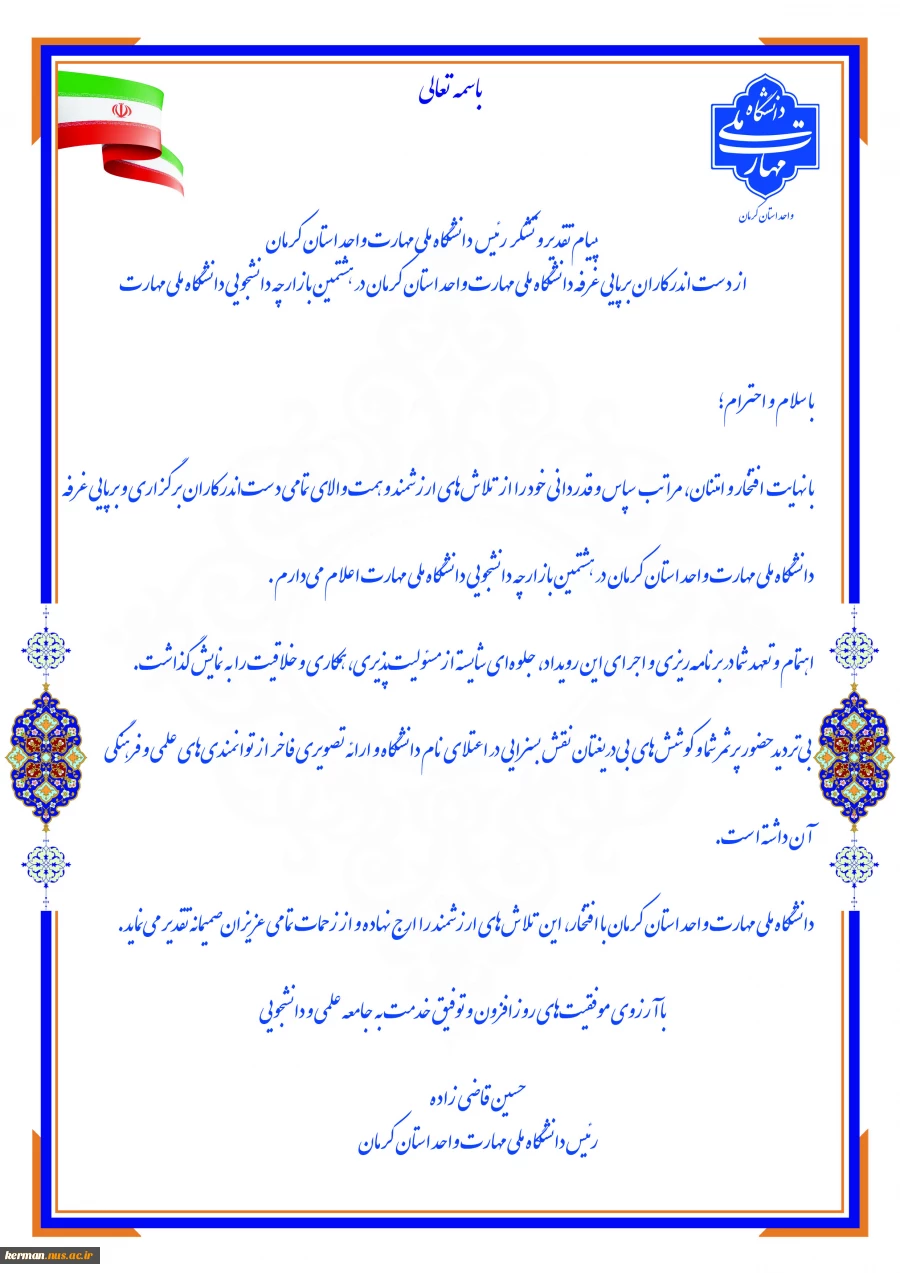 باسمه تعالی
دانشگاه ملی مهارت
واحد استان کرمان
پیام تقدیر و تشکر رئیس دانشگاه ملی مهارت واحد استان کرمان
از دست اندرکاران برپایی غرفه دانشگاه ملی مهارت واحد استان کرمان در هشتمین بازارچه دانشجویی دانشگاه ملی مهارت
با سلام و احترام؛
با نهایت افتخار و امتنان، مراتب سپاس و قدردانی خود را از تلاش‌های ارزشمند و همت والای تمامی دست‌اندرکاران برگزاری و برپایی غرفه
دانشگاه ملی مهارت واحد استان کرمان در هشتمین بازارچه دانشجویی دانشگاه ملی مهارت اعلام می‌دارم .
اهتمام و تعهد شما در برنامه‌ریزی و اجرای این رویداد، جلوه‌ای شایسته از مسئولیت‌پذیری، همکاری و خلاقیت را به نمایش گذاشت.
بی‌تردید حضور پرثمر شما و کوشش‌های بی‌دریغتان نقش بسزایی در اعتلای نام دانشگاه و ارائه تصویری فاخر از توانمندی‌های علمی و فرهنگی
آن داشته است.
دانشگاه ملی مهارت واحد استان کرمان با افتخار، این تلاش‌های ارزشمند را ارج نهاده و از زحمات تمامی عزیزان صمیمانه تقدیر می‌نماید.
با آرزوی موفقیت‌های روزافزون و توفیق خدمت به جامعه علمی و دانشجویی
حسین قاضی زاده
رئیس دانشگاه ملی مهارت واحد استان کرمان
kerman.nus.ac.ir